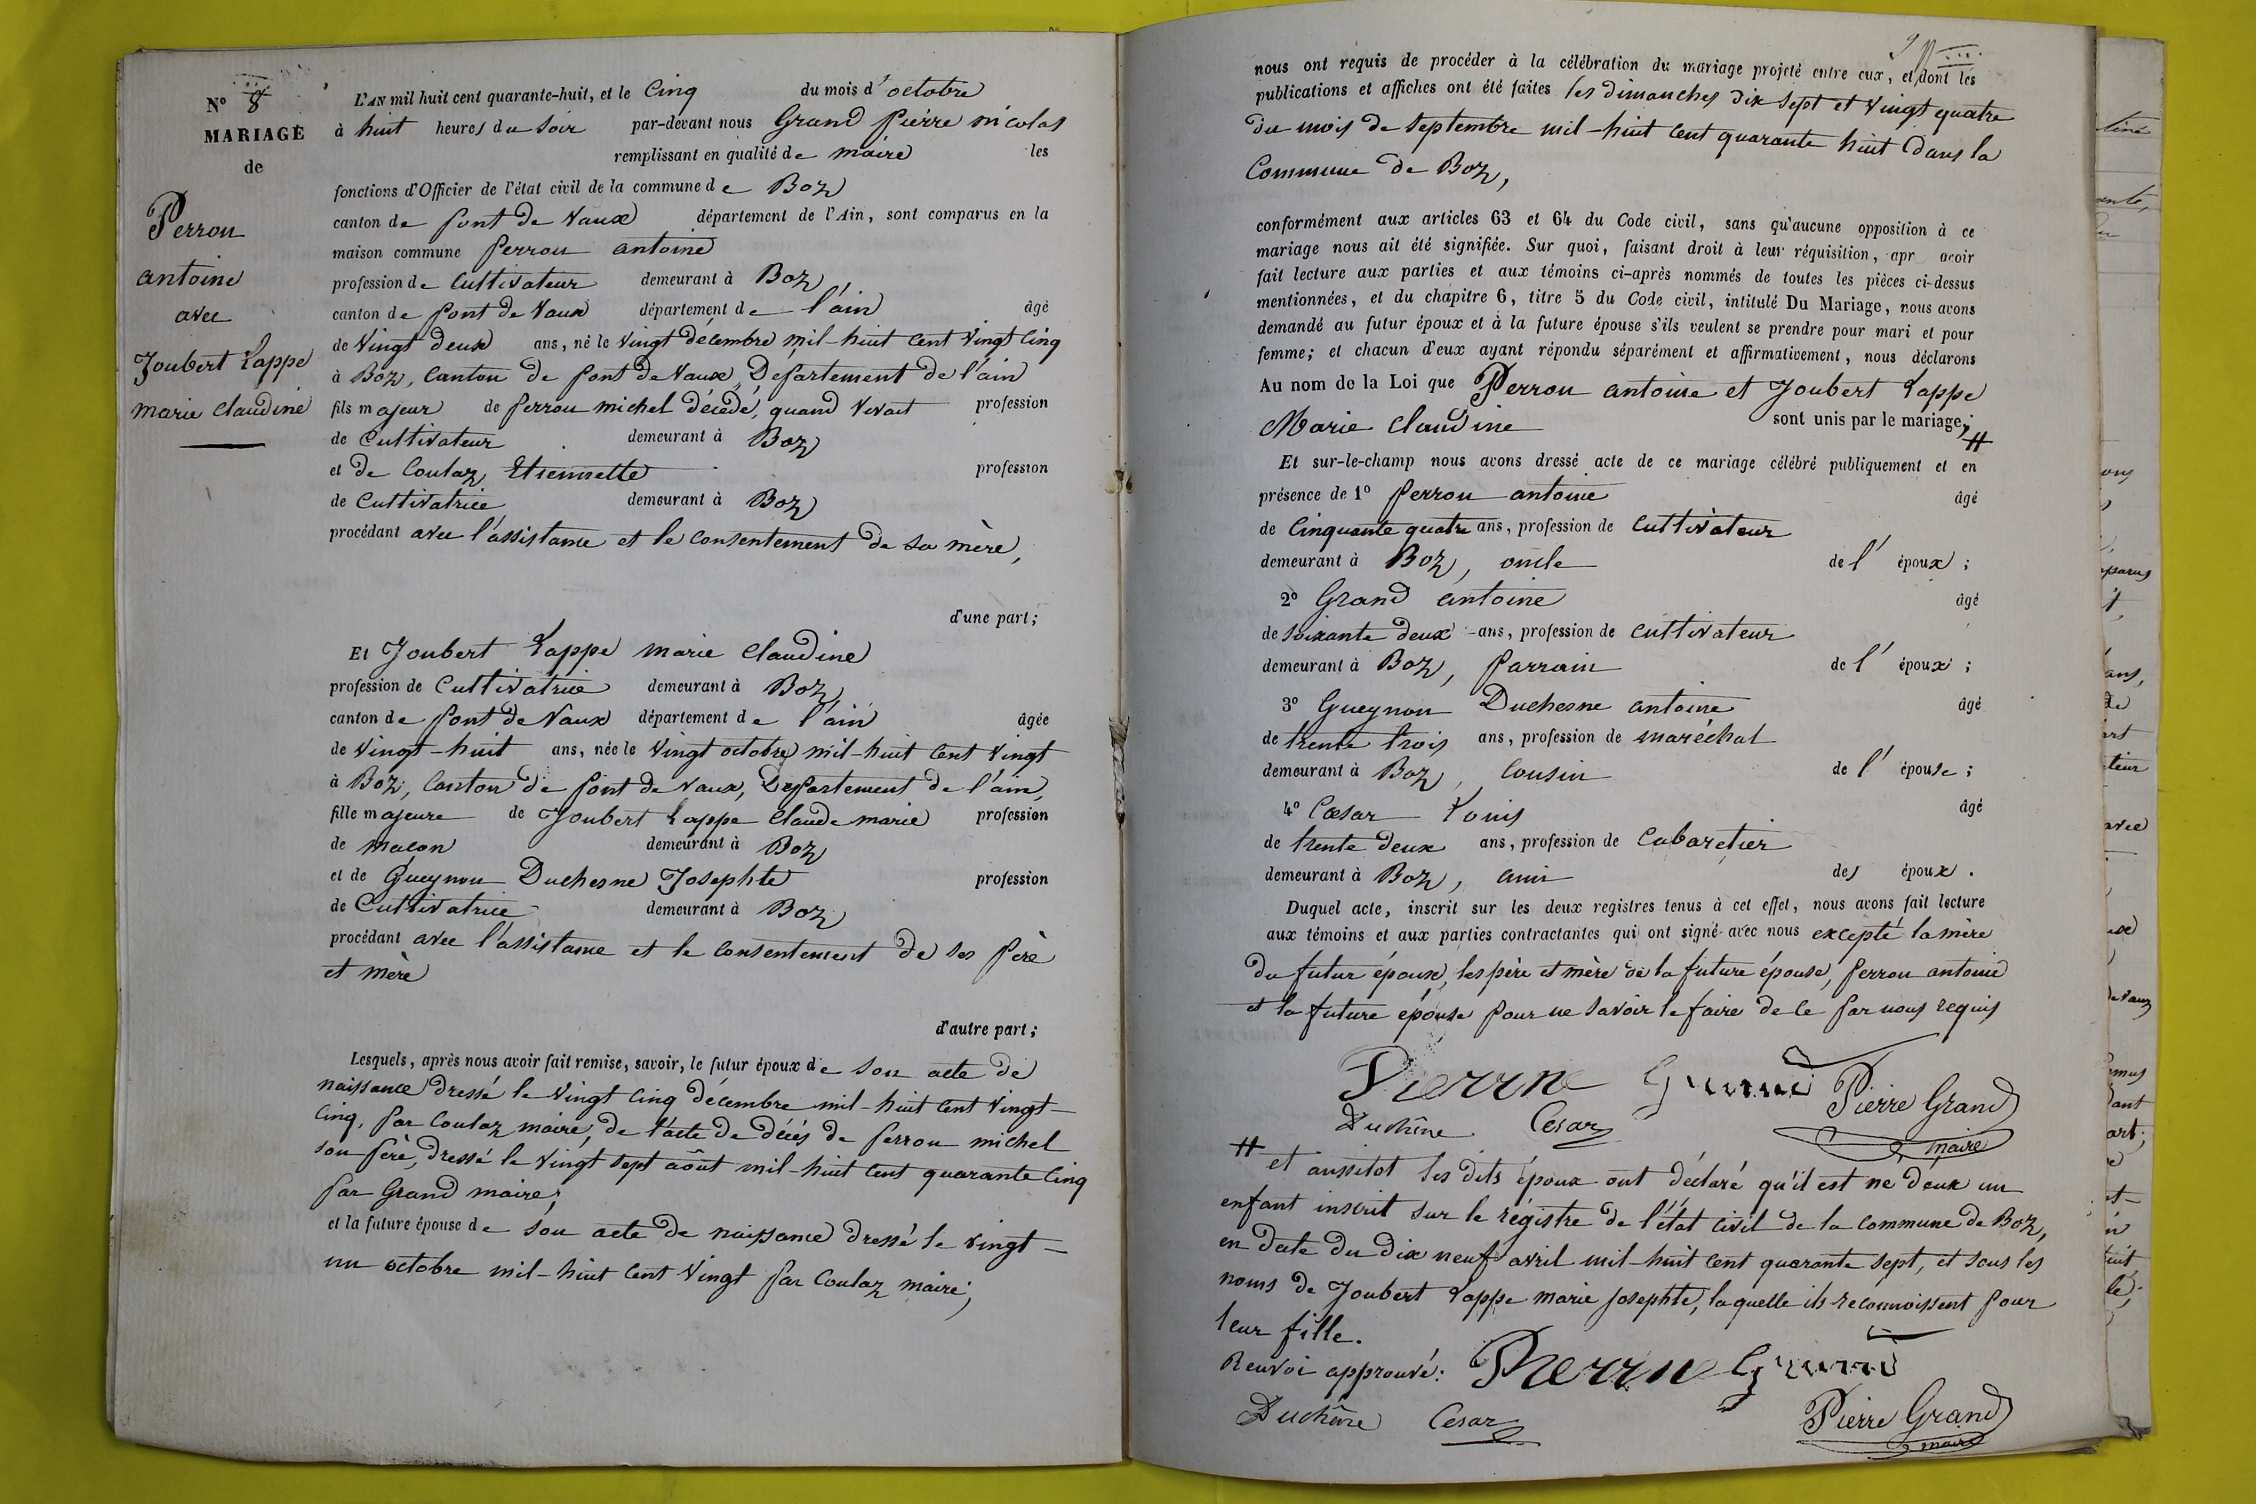 N° 8
MARIAGE
de
Perron
antoine
avec
Joubert Lappe
marie claudine
L'AN mil huit cent quarante-huit, et le Cinq du mois d'octobre
à huit heures du soir par-devant nous Grand Pierre nicolas
remplissant en qualité de maire les
fonctions d'Officier de l'état civil de la commune de Boz
canton de pont de Vaux département de l'Ain, sont comparus en la
maison commune perron antoine
profession de Cultivateur demeurant à Boz
canton de pont de Vaux département de l'ain âgé
de Vingt deux ans, né le Vingt décembre mil-huit cent Vingt Cinq
à Boz, Canton de pont de Vaux, Département de l'ain
fils majeur de perron michel décédé, quand vivait profession
de Cultivateur demeurant à Boz
et de Coulaz, Etiennette profession
de Cultivatrice demeurant à Boz
procédant avec l'assistance et le consentement de sa mère,
d'une part;
Et Joubert Lappe marie claudine
profession de Cultivatrice demeurant à Boz
canton de pont de Vaux département de l'ain âgée
de Vingt-huit ans, née le Vingt octobre mil-huit Cent Vingt
à Boz, Canton de pont de Vaux, Département de l'ain,
fille majeure de Joubert Lappe Claude marie profession
de macon demeurant à Boz
et de Gueynon Duchesne Josephte profession
de Cultivatrice demeurant à Boz
procédant avec l'assistance et le consentement de ses père
et mère
d'autre part;
Lesquels, après nous avoir fait remise, savoir, le futur époux de son acte de
naissance dressé le Vingt Cinq décembre mil-huit Cent Vingt-
Cinq, par Coulaz maire, de l'acte de décès de perron michel
son père, dressé le Vingt sept aôut mil-huit Cent quarante Cinq
par Grand maire;
et la future épouse de son acte de naissance dressé le vingt-
un octobre mil-huit Cent Vingt par Coulaz maire;
nous ont requis de procéder à la célébration du mariage projeté entre eux, et dont les
publications et affiches ont été faites les dimanches dix sept et Vingt quatre
du mois de septembre mil-huit Cent quarante huit dans la
Commune de Boz,
conformément aux articles 63 et 64 du Code civil, sans qu'aucune opposition à ce
mariage nous ait été signifiée. Sur quoi, faisant droit à leur réquisition, apr avoir
fait lecture aux parties et aux témoins ci-après nommés de toutes les pièces ci-dessus
mentionnées, et du chapitre 6, titre 5 du Code civil, intitulé Du Mariage, nous avons
demandé au futur époux et à la future épouse s'ils veulent se prendre pour mari et pour
femme; et chacun d'eux ayant répondu séparément et affirmativement, nous déclarons
Au nom de la Loi que Perron antoine et Joubert Lappe
Marie Claudine sont unis par le mariage; #
Et sur-le-champ nous avons dressé acte de ce mariage célébré publiquement et en
présence de 1° perron antoine âgé
de Cinquante quatre ans, profession de Cultivateur
demeurant à Boz, oncle de l'époux;
2° Grand antoine âgé
de soixante deux ans, profession de Cultivateur
demeurant à Boz, parrain de l'époux;
3° Gueynon Duchesne antoine âgé
de trente trois ans, profession de maréchal
demeurant à Boz, Cousin de l'épouse;
4° Cæsar Louis âgé
de trente deux ans, profession de Cabaretier
demeurant à Boz, ami des époux.
Duquel acte, inscrit sur les deux registres tenus à cet effet, nous avons fait lecture
aux témoins et aux parties contractantes qui ont signé avec nous excepté la mère
du futur époux, les père et mère de la future épouse, perron antoine
et la future épouse pour ne savoir le faire de ce par nous requis
Pierrne Grand Pierre Grand
Duchêne Cesar maire
# et aussitot les dits époux ont déclaré qu'il est né deux un
enfant inscrit sur le régistre de l'état civil de la commune de Boz,
en date du dix neuf avril mil-huit Cent quarante sept, et sous les
noms de Joubert Lappe marie josephte, laquelle ils reconnoissent pour
leur fille.
Renvoi approuvé: Grand
Duchêne Cesar Pierre Grand
maire